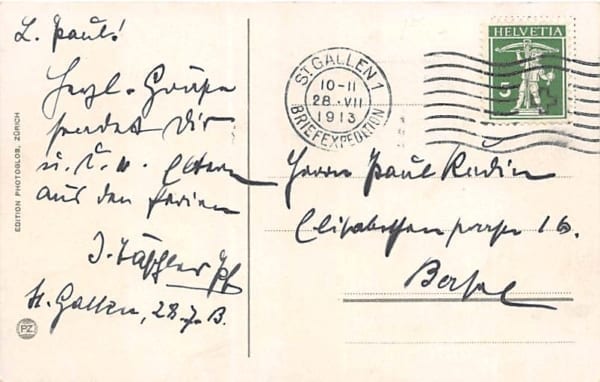 L. Paul!
Herzl. Grüße
sendet Dir
u. d. w. Eltern
aus den Ferien
J.
St. Gallen, 28.7.13.
EDITION PHOTOGLOB, ZÜRICH
PZ
ST. GALLEN 1
10-11
28.VII
1913
BRIEFEXPEDITION
HELVETIA
5
Herrn Paul Rudin
Elisabethenstrasse 16.
Basel